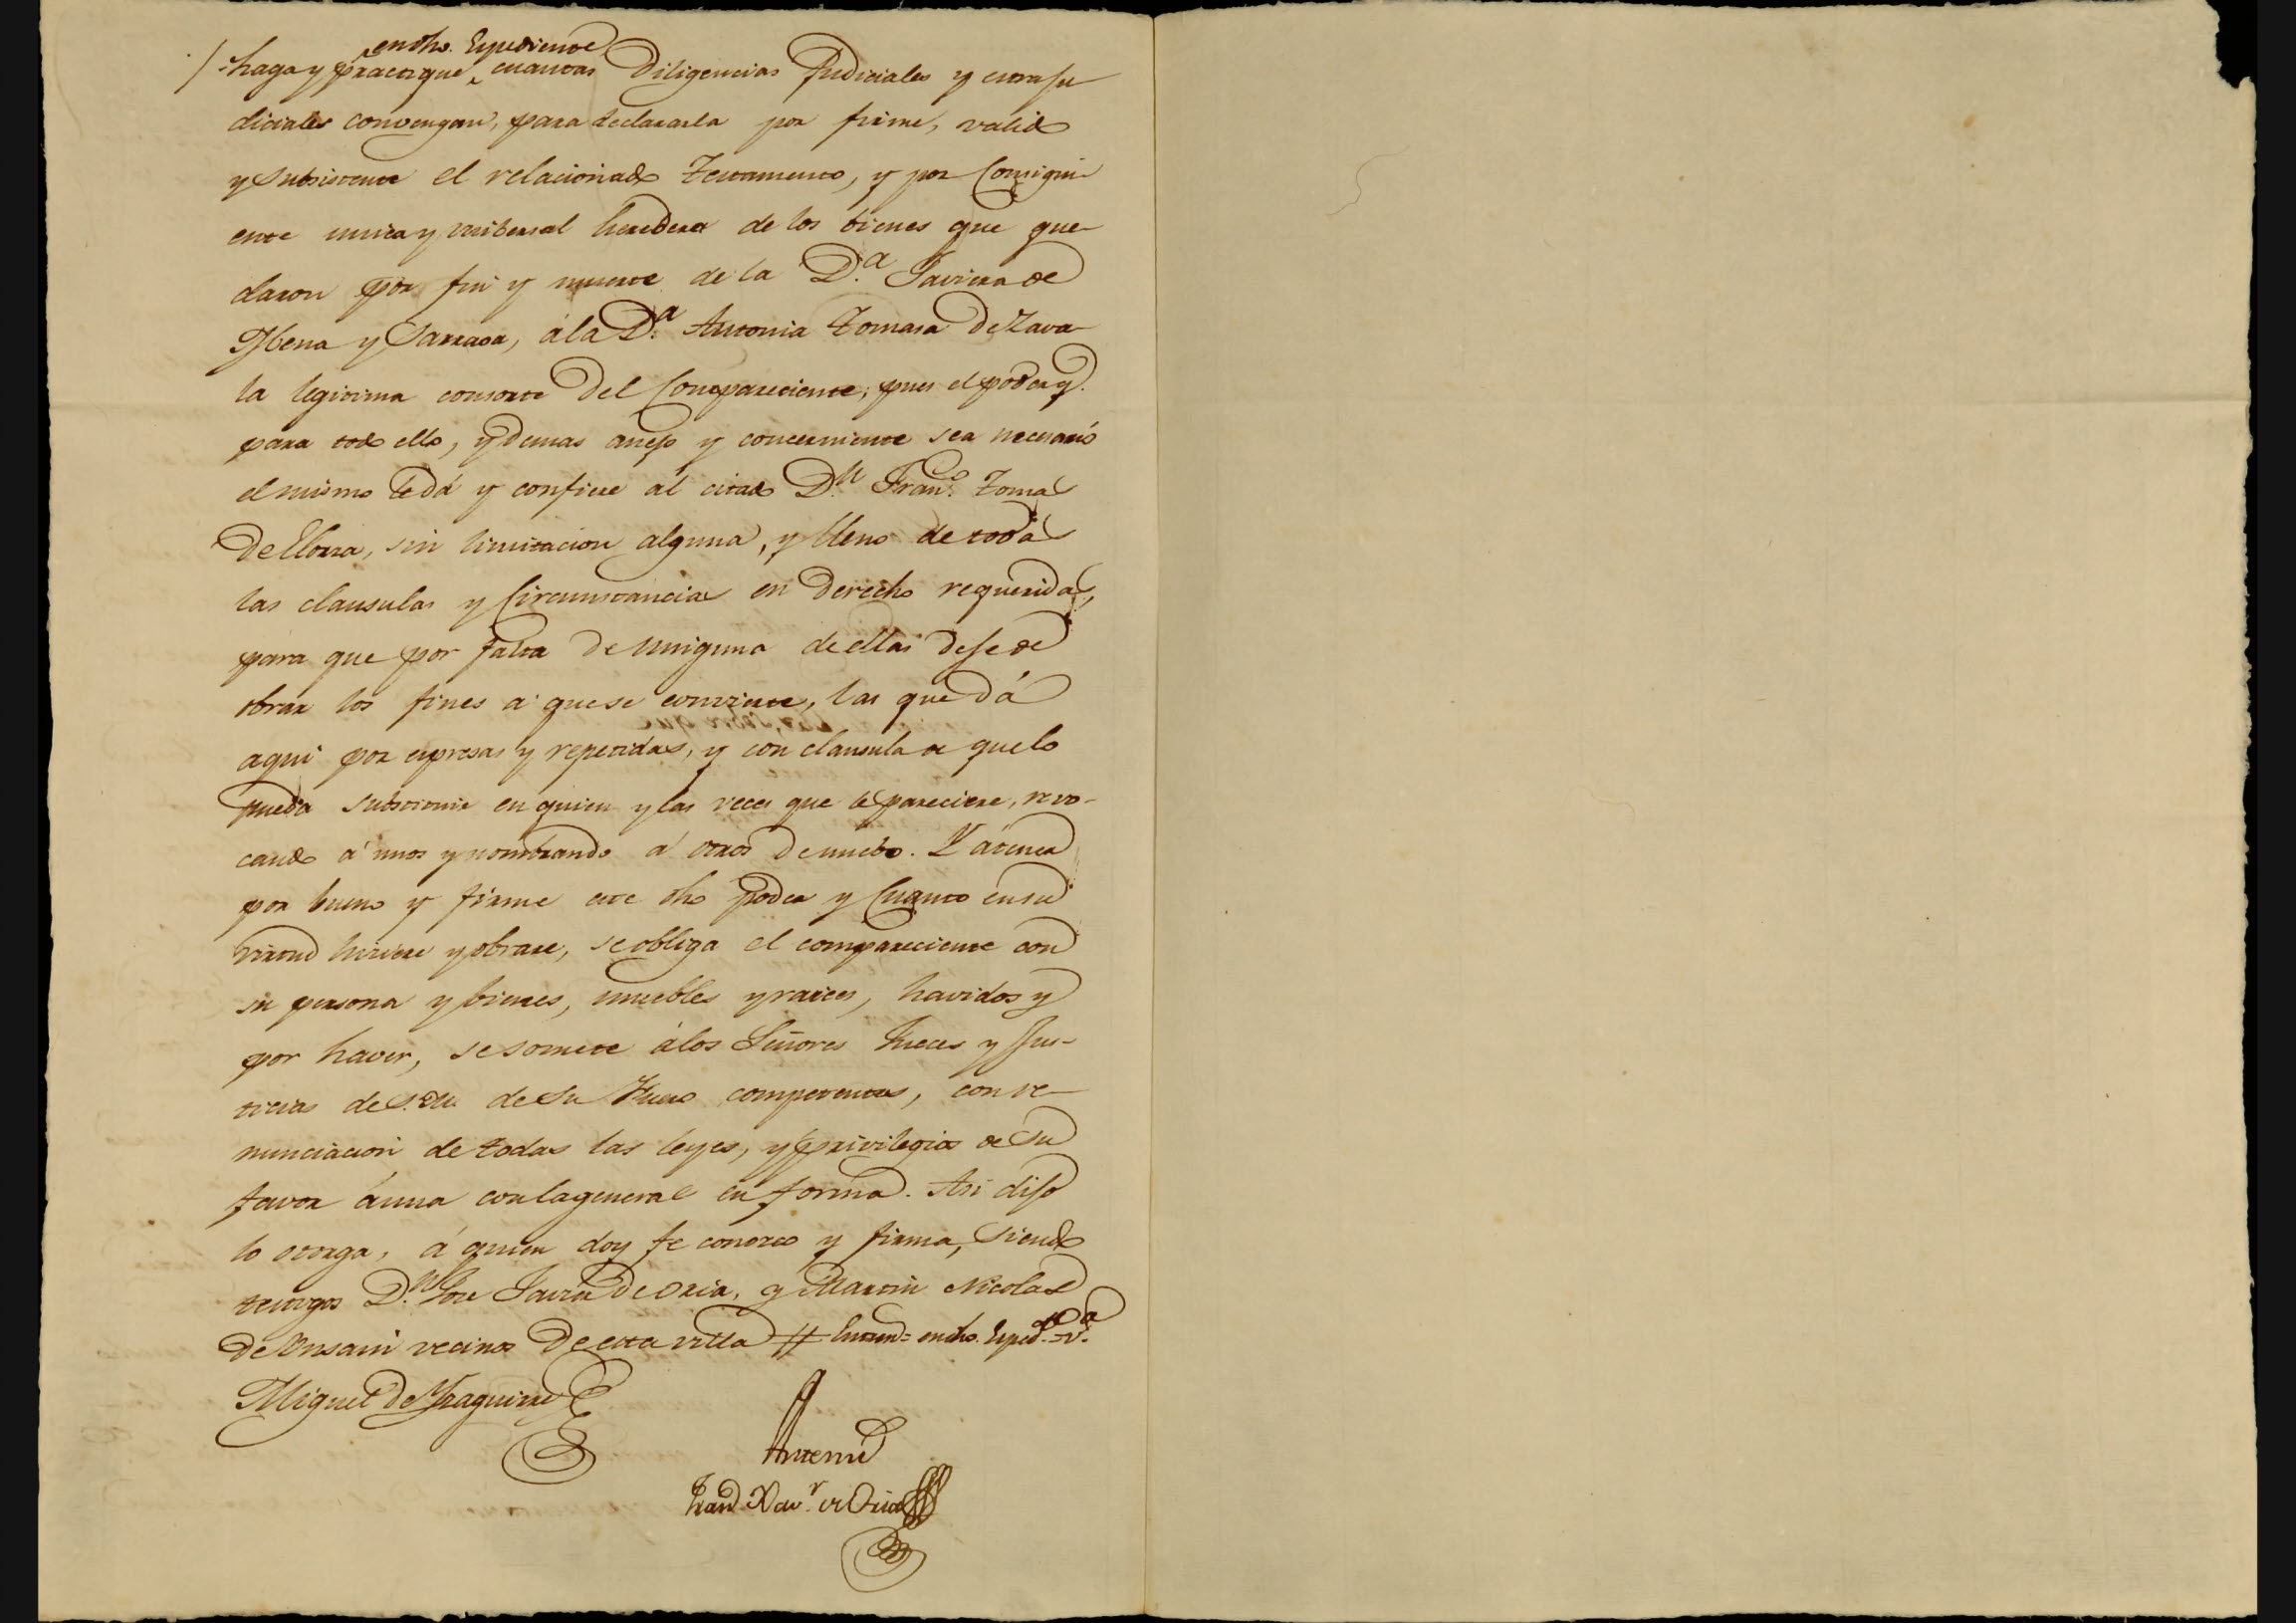 en dho. Expediente
haga y practique cuantas Diligencias Judiciales y extraju
diciales convengan, para declararla por firme, valido
y subsistente el relacionado Testamento, y por Consigui-
ente unica y unibersal heredera de los bienes que que-
daron por fin y muerte de la D.ª Javiera de
Ybena y Sarrasa, á la D.ª Antonia Tomasa de Zava-
la legitima consorte del Compareciente; pues el poder q.
para todo ello, y demas anejo y concerniente sea necesario
el mismo le dá y confiere al citado D.n Fran.co Tomas
de Elorza, sin limitacion alguna, y lleno de todas
las clausulas y Circunstancias en derecho requeridas,
para que por falta de ninguna de ellas deje de
obrar los fines a que se convierte, las que dá
aqui por expresas y repetidas, y con clausula de que lo
pueda substituir en quien y las veces que le pareciere, revo-
cando á unos y nombrando á otros de nuebo. Y á tener
por bueno y firme este dho poder y Cuanto en su
virtud hiciere y obrare, se obliga el compareciente con
su persona y bienes, muebles y raices, havidos y
por haver, se somete á los Señores Jueces y Jus-
ticias de S.M. de su Fuero competentes, con re-
nunciacion de todas las leyes, y privilegios de su
favor á una con la general en forma. Asi dijo
lo otorga, á quien doy fe conozco y firma, siendo
testigos D.n Jose Javier de Oria, y Martin Nicolas
de Unsain vecinos de esta villa # Entrend= en dho. Exped.te=v.ª
Miguel de Yraguirre
Ante mi
Fran.co Xav.r de Oria